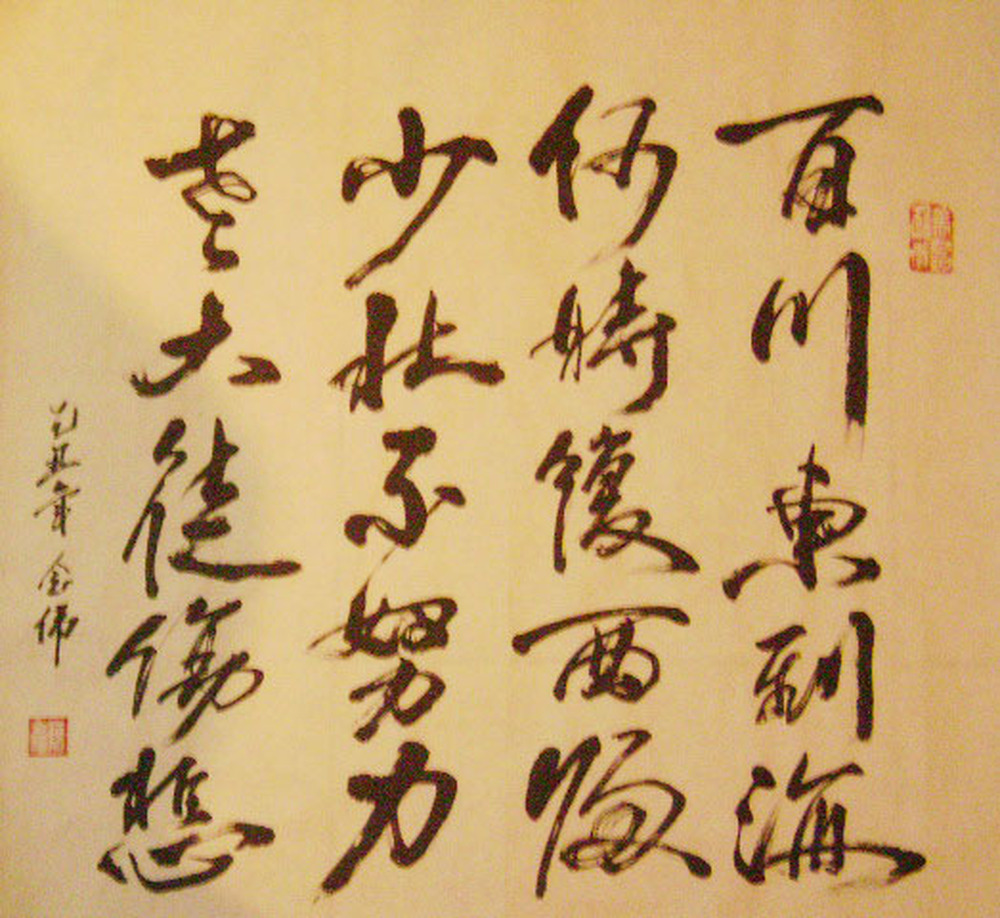 百川東到海
何時復西歸
少壯不努力
老大徒傷悲
己丑年 金伟